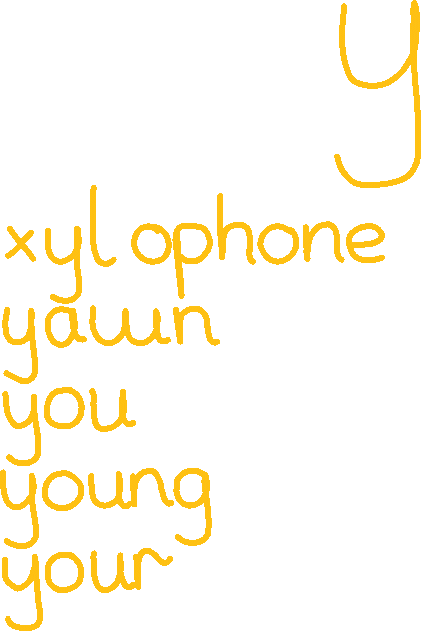 y
xylophone
yawn
you
young
your